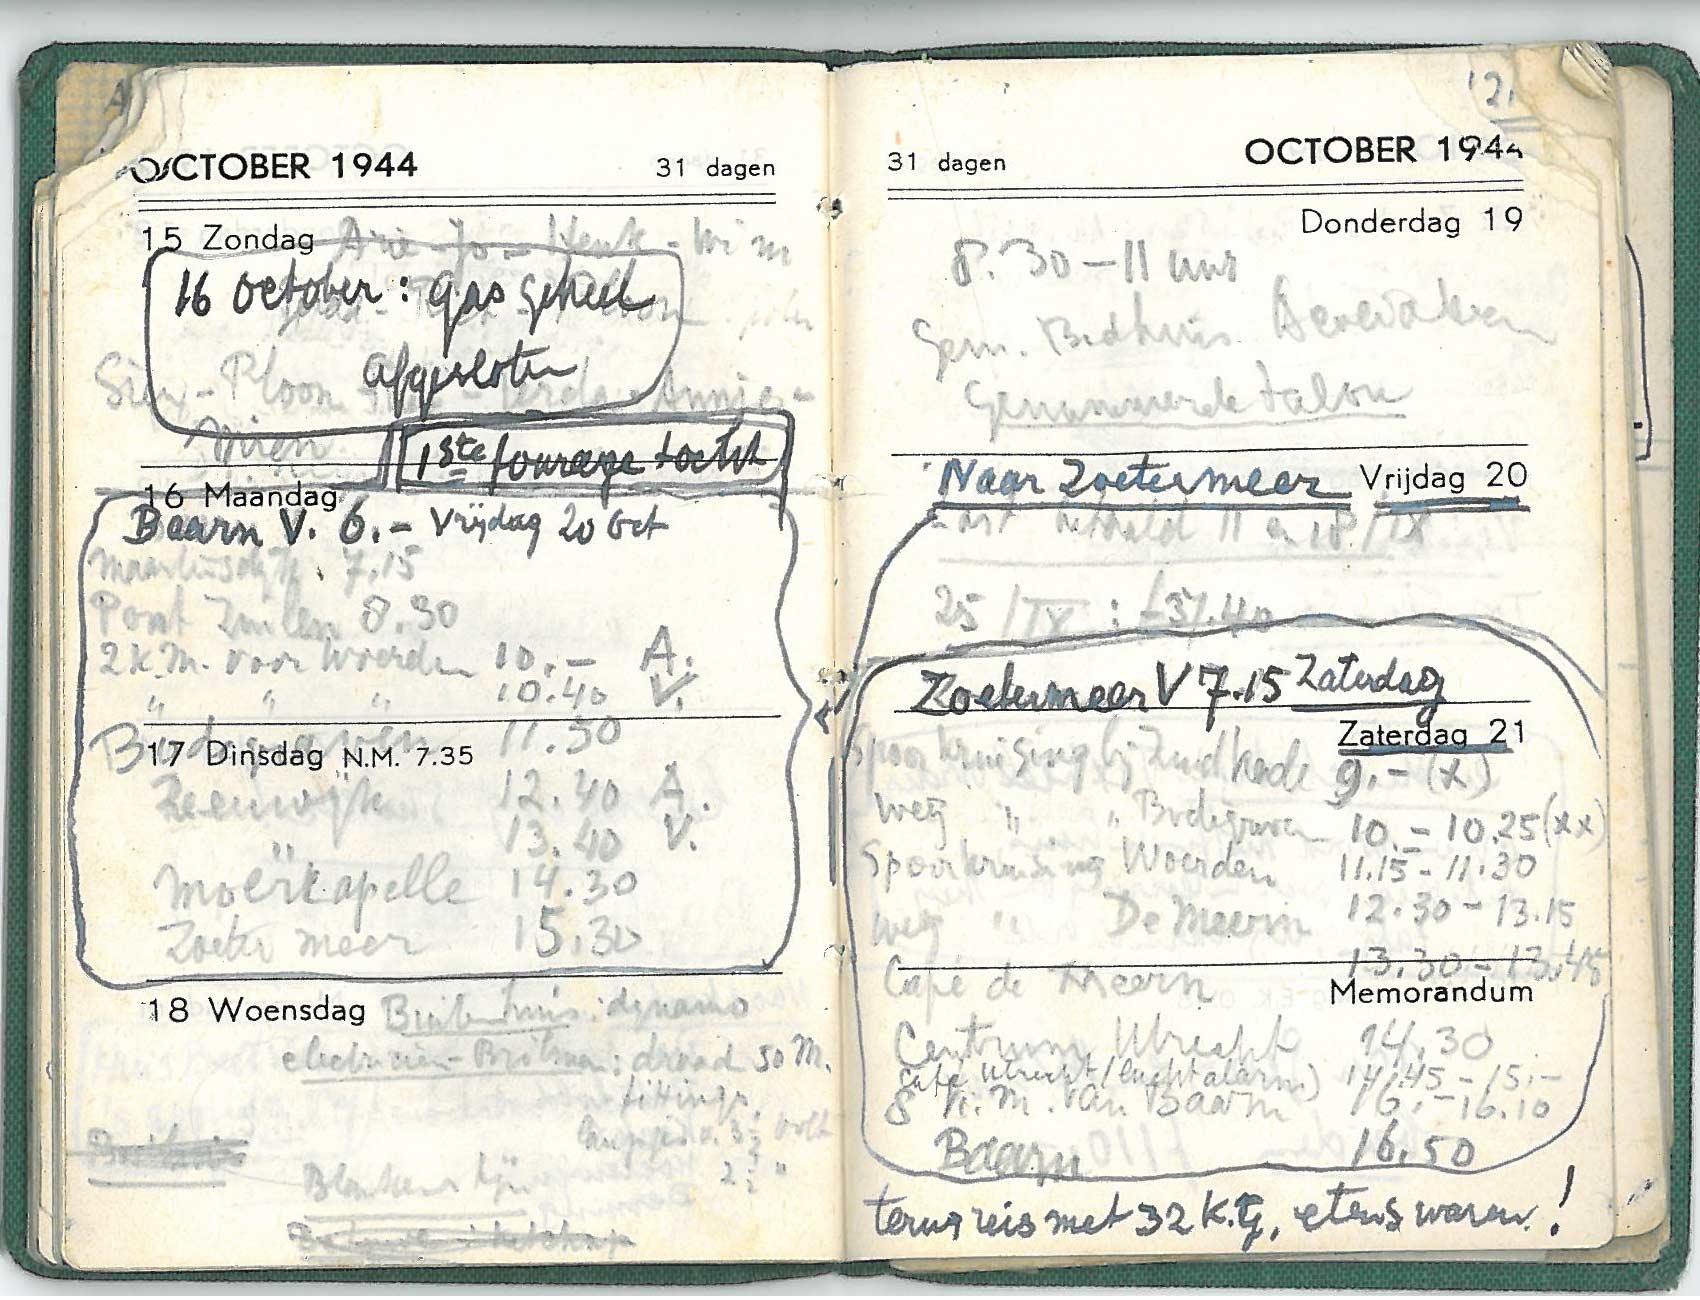 OCTOBER 1944 31 dagen
15 Zondag Arie - Jo - Henk - Wim
16 october: gas geheel
afgesloten
Sien - Ploon - Annie -
Mien
1ste fourage tocht
16 Maandag
Baarn V. 6.- Vrijdag 20 Oct
Maartensdijk 7.15
Pont Zuilen 8.30
2 K.M. voor Woerden 10.- A.
" " " 10.40 V.
Bodegraven 11.30
17 Dinsdag N.M. 7.35
Zeeuwijk 12.40 A.
13.40 V.
Moerkapelle 14.30
Zoetermeer 15.30
18 Woensdag Buitenhuis: dynamo
electricien - draad 50 M.
fittings,
lampjes v. 3½ volt
2½ "
31 dagen OCTOBER 1944
Donderdag 19
8.30 - 11 uur
Gem. Badhuis
Genummerde talon
Naar Zoetermeer Vrijdag 20
betaald 11 en 18/IX
25/IX : f 37.40
Zoetermeer V 7.15 Zaterdag
Zaterdag 21
Spoorkruising bij Zuidkade 9.- (x)
weg " " Bodegraven 10.- 10.25 (xx)
Spoorkruising Woerden 11.15 - 11.30
weg " De Meern 12.30 - 13.15
Café de Meern 13.30 - 13.45
Memorandum
Centrum Utrecht 14.30
Café Utrecht (luchtalarm) 14.45 - 15.-
8 K.M. van Baarn 16.- 16.10
Baarn 16.50
terugreis met 32 K.G. etenswaren!